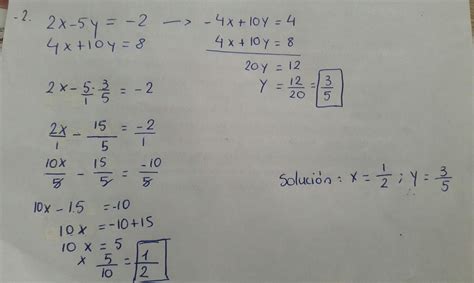 -2.
2x-5y = -2 —> -4x+10y = 4
4x+10y = 8
4x+10y = 8
20y = 12
y = 12/20 = 3/5
2x - 5/1 · 3/5 = -2
2x/1 - 15/5 = -2/1
10x/5 - 15/5 = -10/5
10x - 15 = -10
10x = -10+15
10x = 5
x 5/10 = 1/2
Solución: x = 1/2 ; y = 3/5